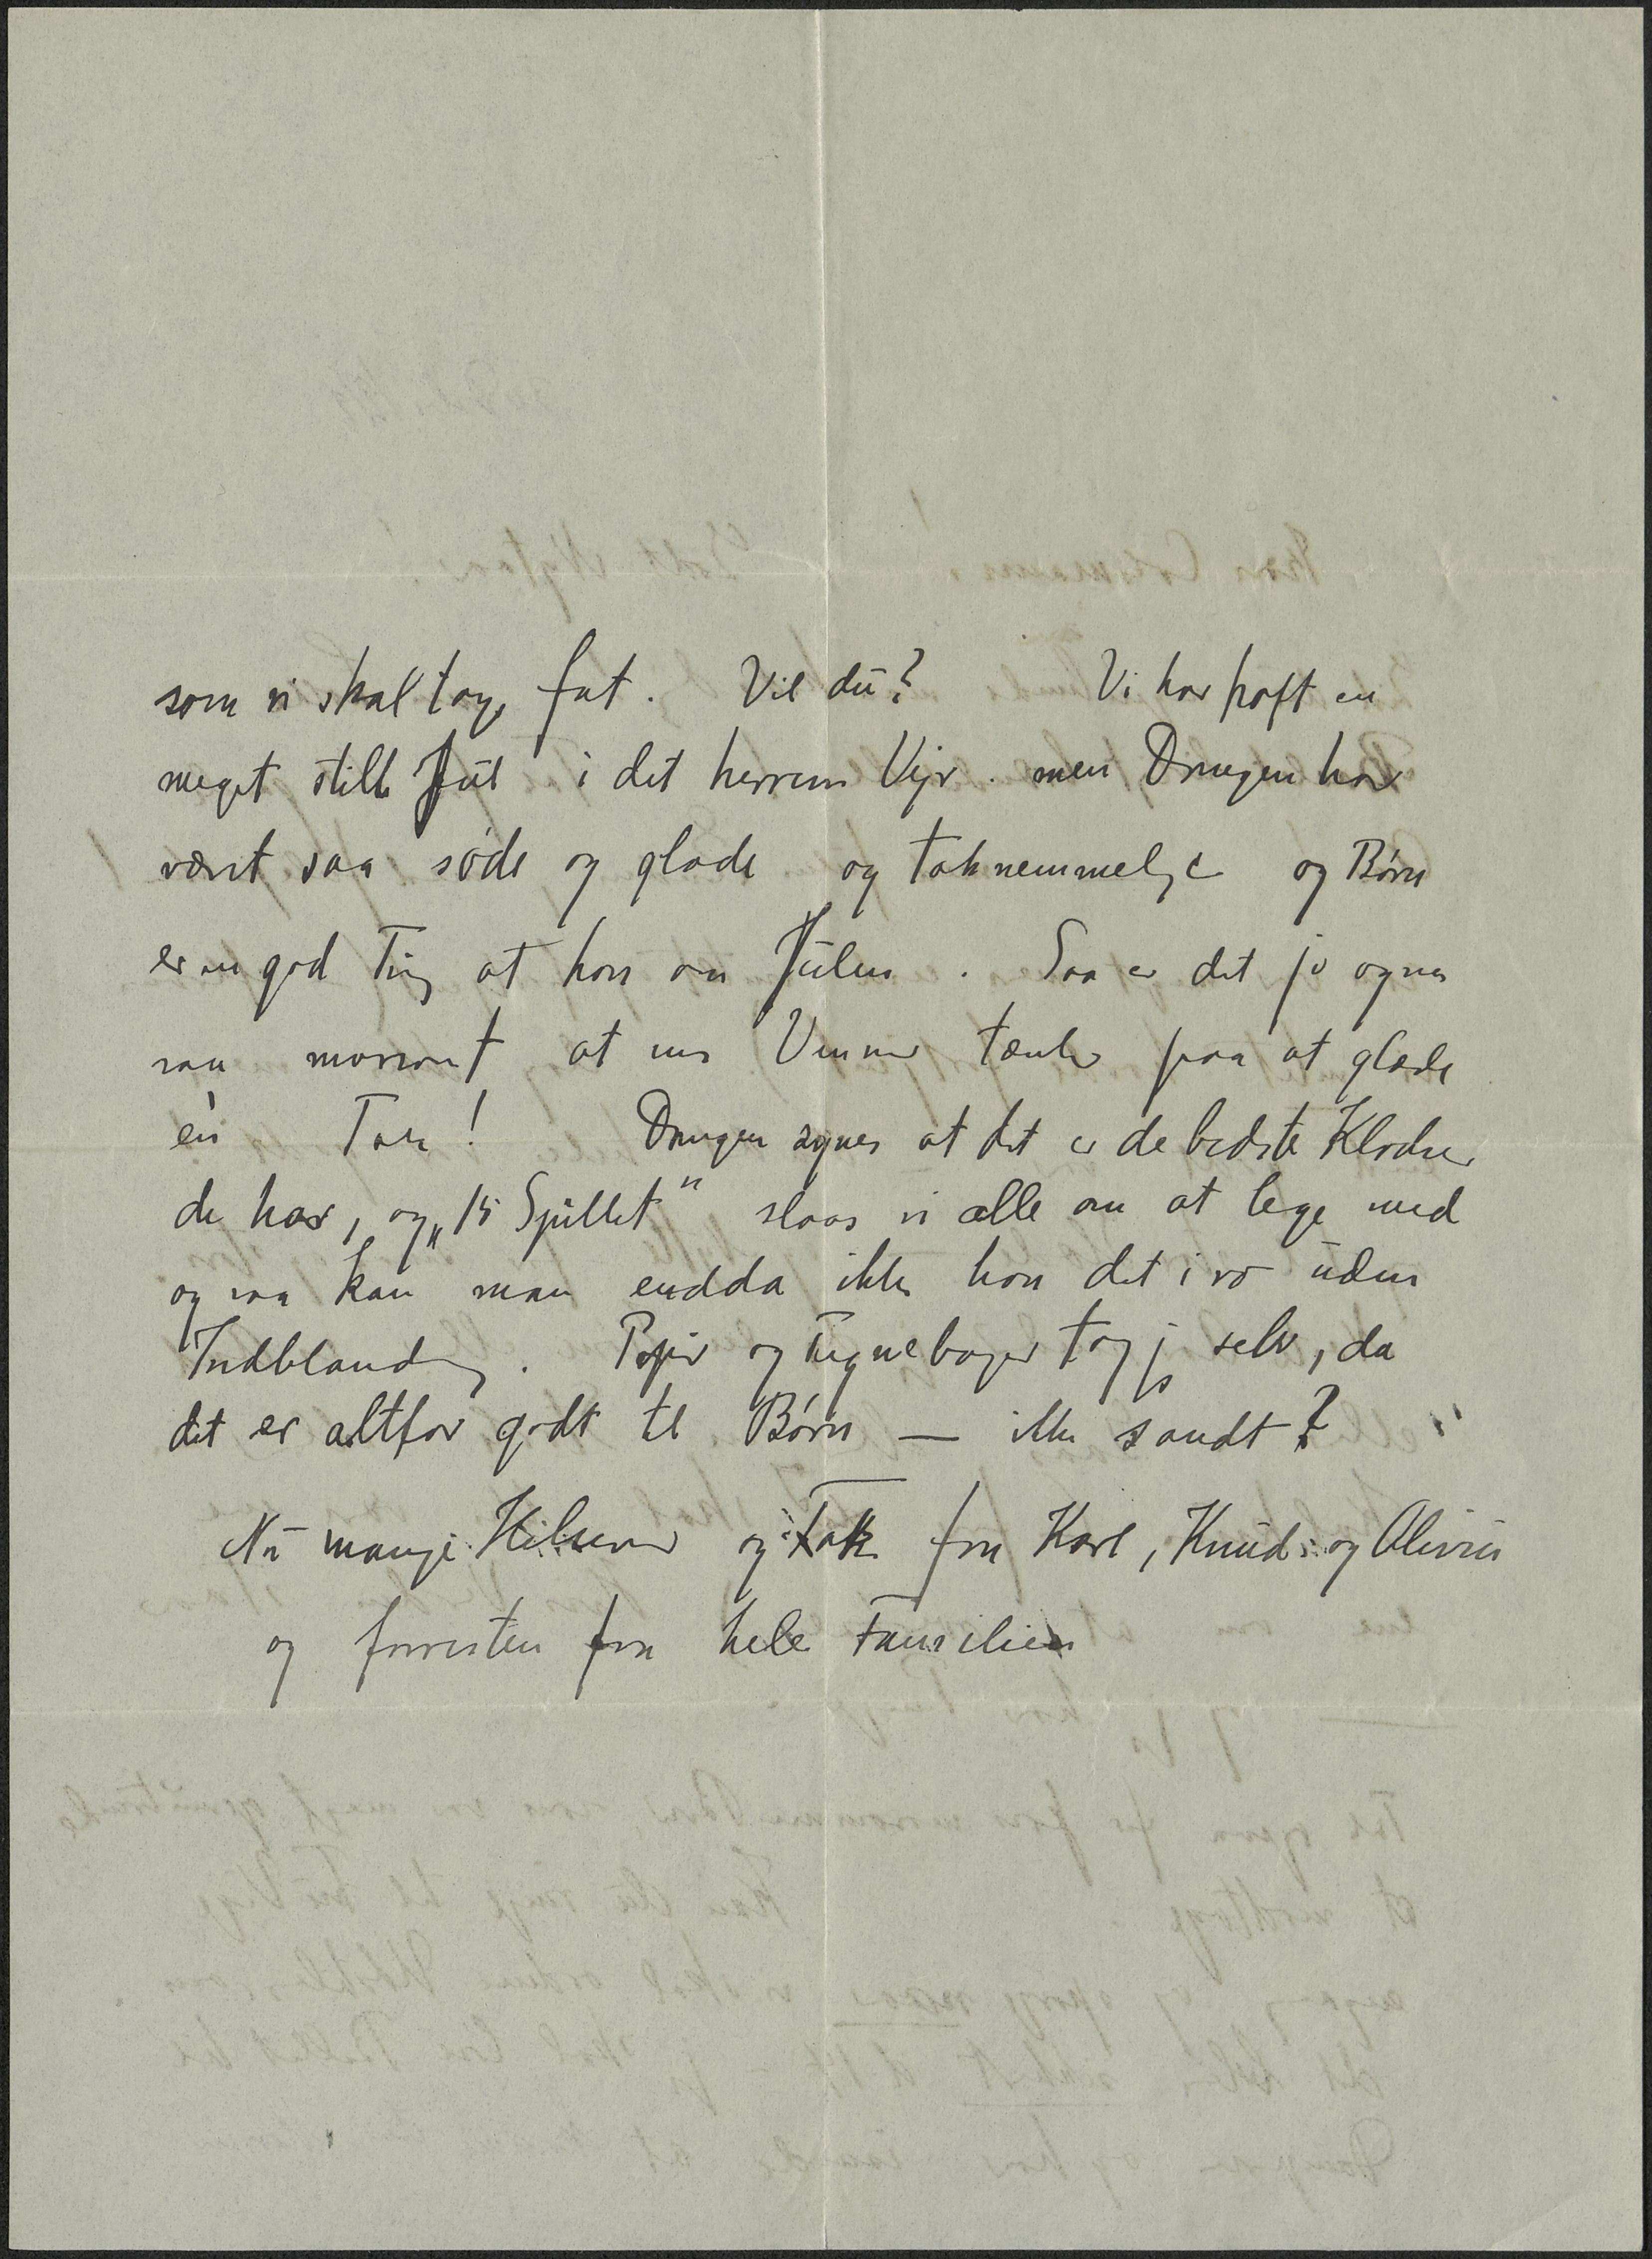 som vi skal tage fat. Vil du? Vi har haft en
meget stille Jul i det herrens Vejr. men Drengen har
været saa søde og glade og taknemmelige og Børn
er en god Ting at have om Julen. Saa er det jo ogsaa
saa morsomt at ens Venner tænker paa at glæde
én Tak! Drengen synes at det er de bedste Klodser
de har, og „15 Spillet" slaas vi alle om at lege med
og saa kan man endda ikke have det i ro uden
Indblanding. Papir og Tegnebøger tog jeg selv, da
det er altfor godt til Børn — ikke sandt?
Nu mange Hilsener og Tak fra Karl, Knud og
og forresten fra hele Familien